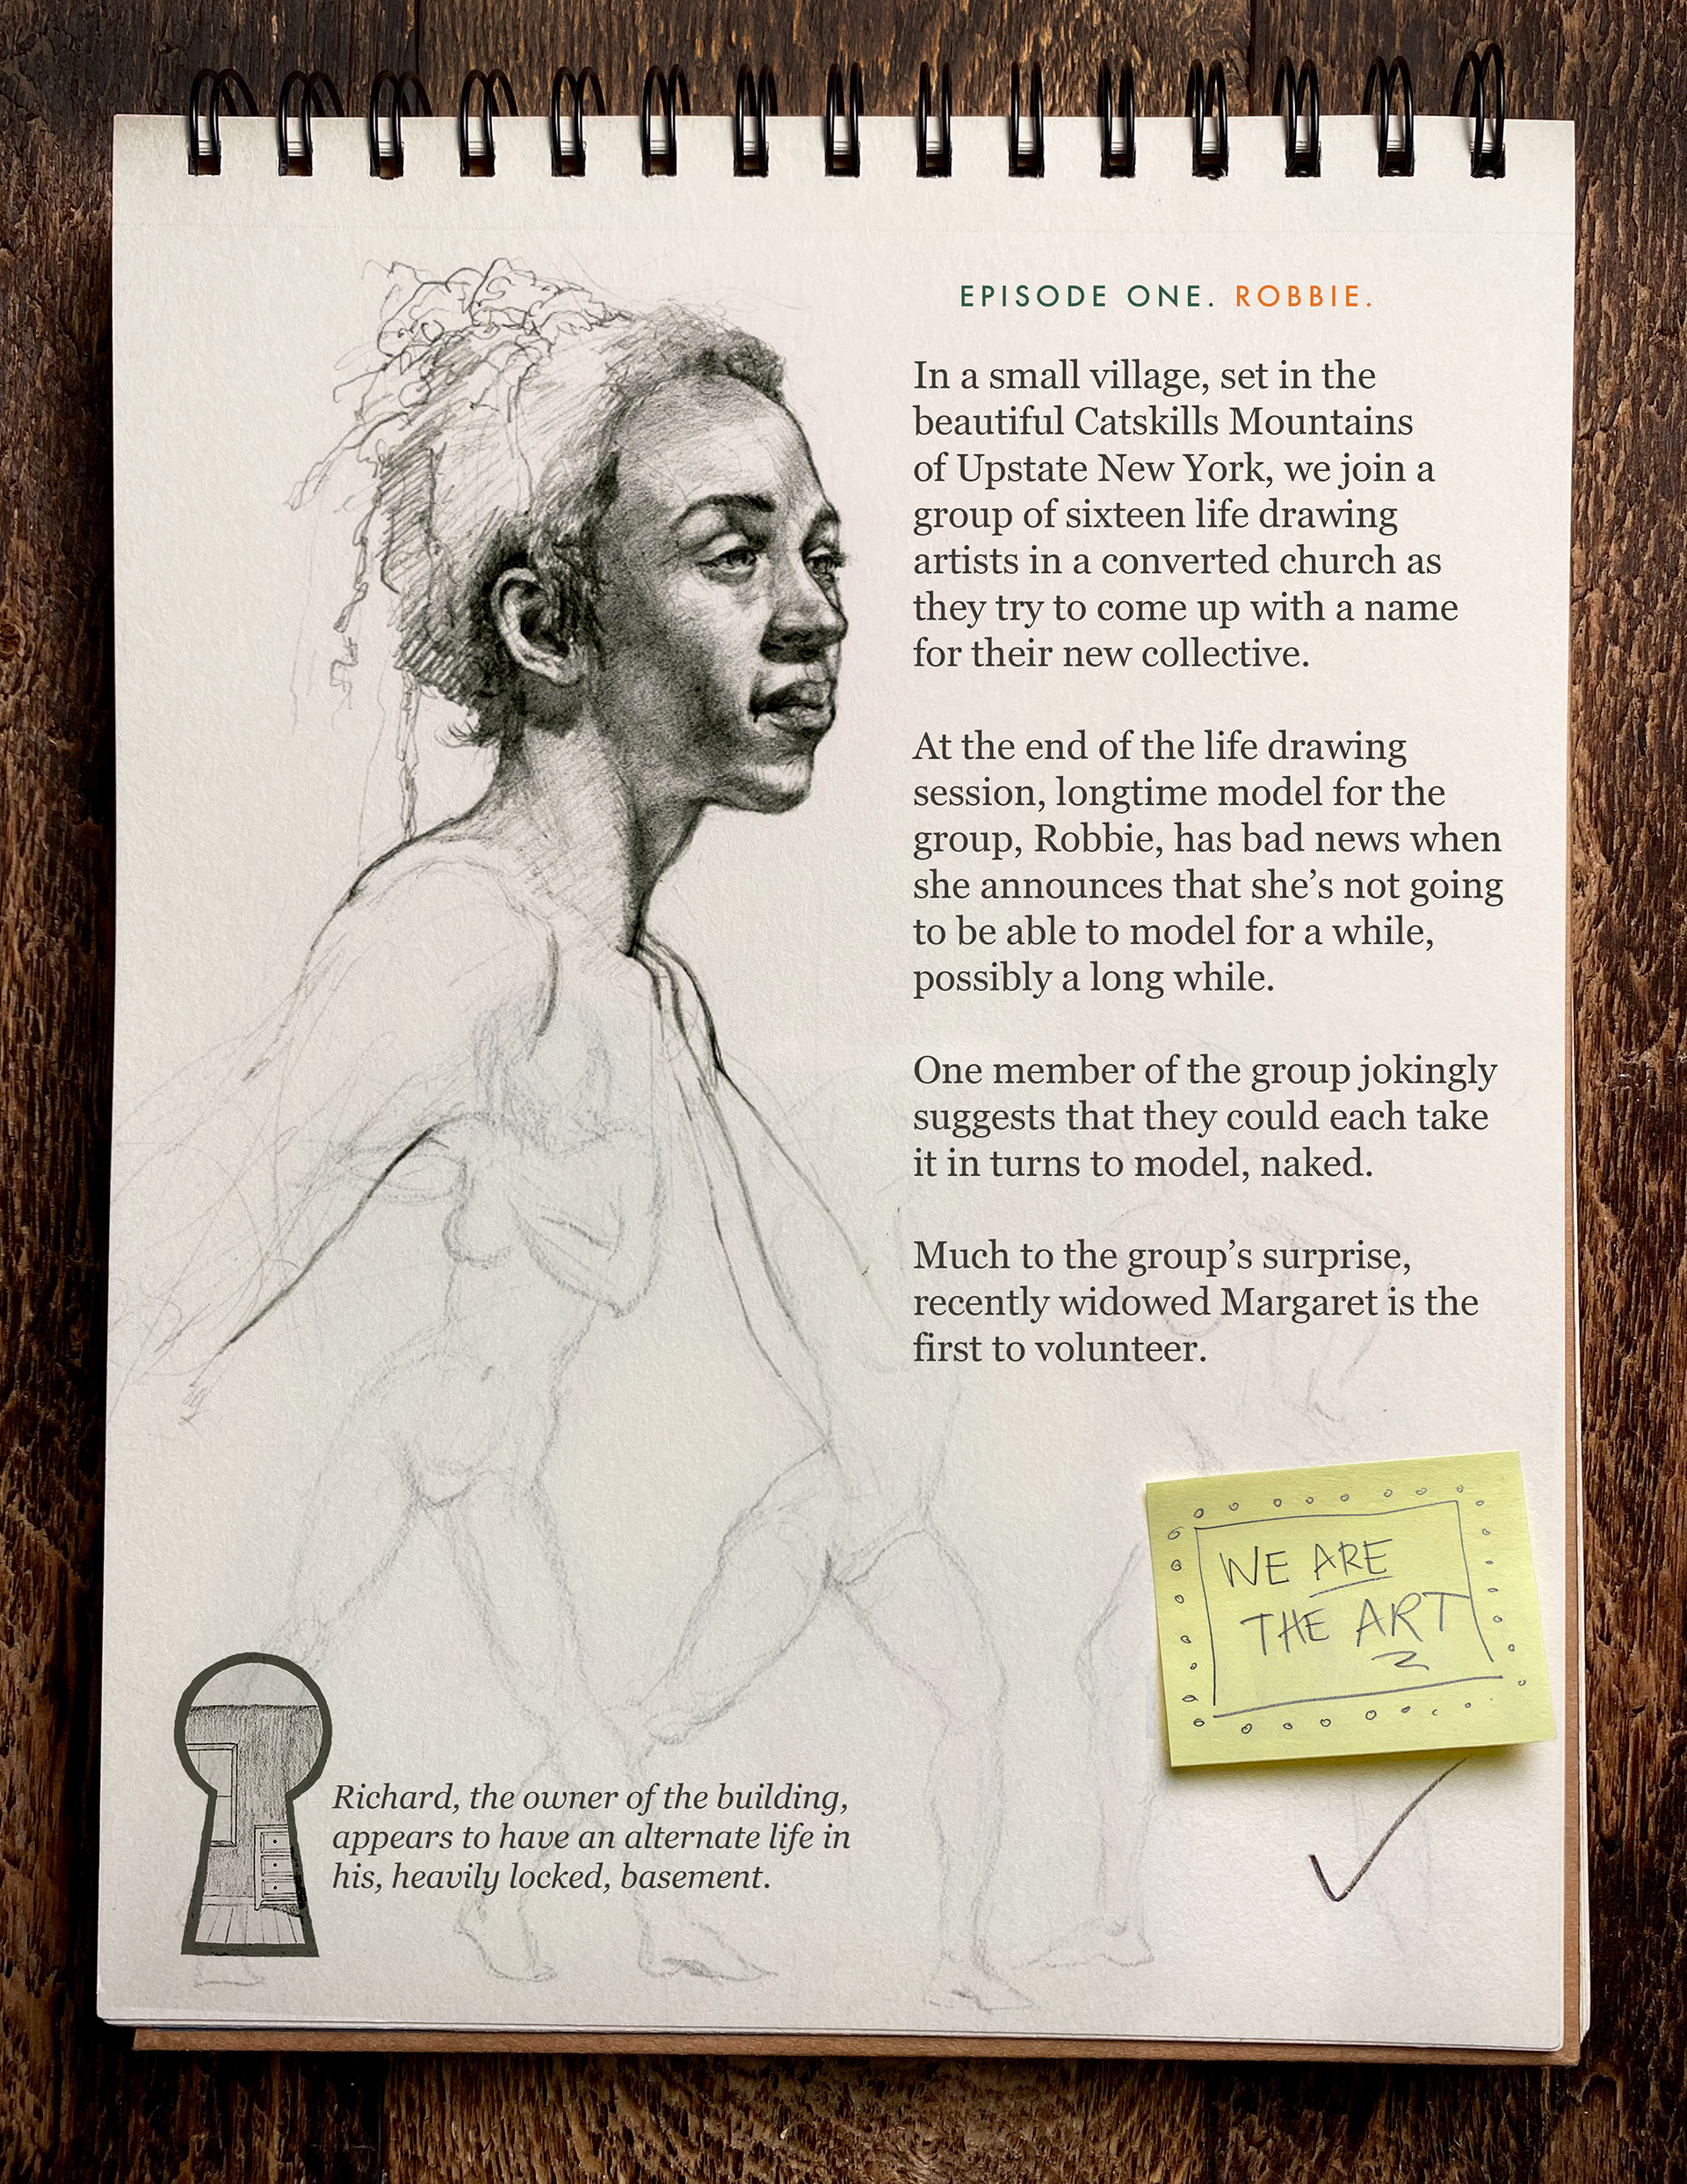 EPISODE ONE. ROBBIE.
In a small village, set in the
beautiful Catskills Mountains
of Upstate New York, we join a
group of sixteen life drawing
artists in a converted church as
they try to come up with a name
for their new collective.
At the end of the life drawing
session, longtime model for the
group, Robbie, has bad news when
she announces that she’s not going
to be able to model for a while,
possibly a long while.
One member of the group jokingly
suggests that they could each take
it in turns to model, naked.
Much to the group’s surprise,
recently widowed Margaret is the
first to volunteer.
WE ARE
THE ART
Richard, the owner of the building,
appears to have an alternate life in
his, heavily locked, basement.